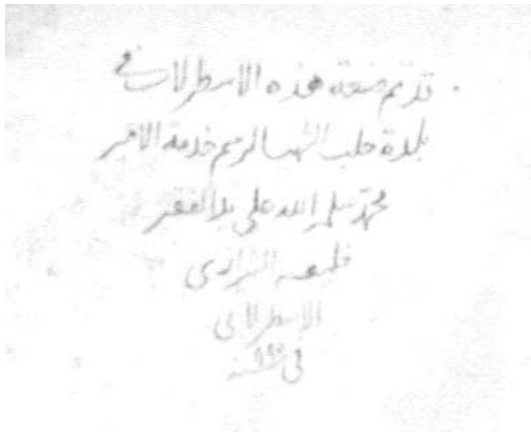 قد تم صنعة هذه الاسطرلاب في
بلدة حلب الشهبا لرسم خدمة الامير
محمد سلمه الله على يد الفقير
خليفه
الاسطرلابي
في سنه